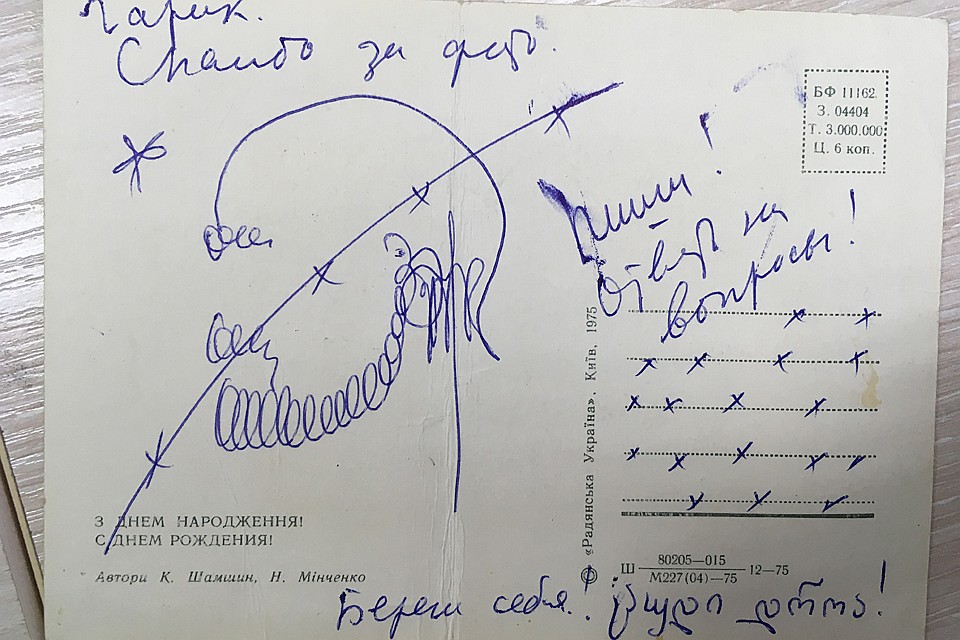 Гарик.
Спасибо за фото.
Пиши!
Ответь на
вопросы!
БФ 11162.
З. 04404
Т. 3.000.000
Ц. 6 коп.
© «Радянська Україна». Київ. 1975
З ДНЕМ НАРОДЖЕННЯ!
С ДНЕМ РОЖДЕНИЯ!
Автори К. Шамшин, Н. Мінченко
Ш 80205—015 12—75
М227(04)—75
Береги себя!